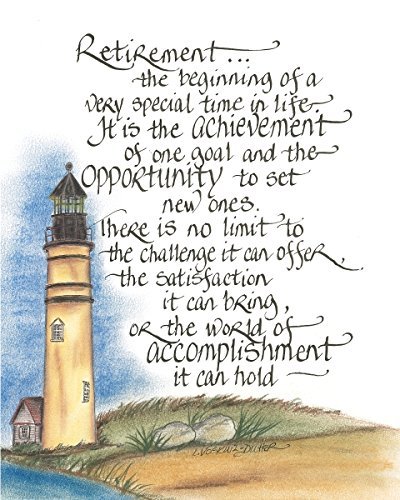 Retirement...
the beginning of a
very special time in life.
It is the ACHIEVEMENT
of one goal and the
OPPORTUNITY to set
new ones.
There is no limit to
the challenge it can offer,
the satisfaction
it can bring,
or the world of
ACCOMPLISHMENT
it can hold —